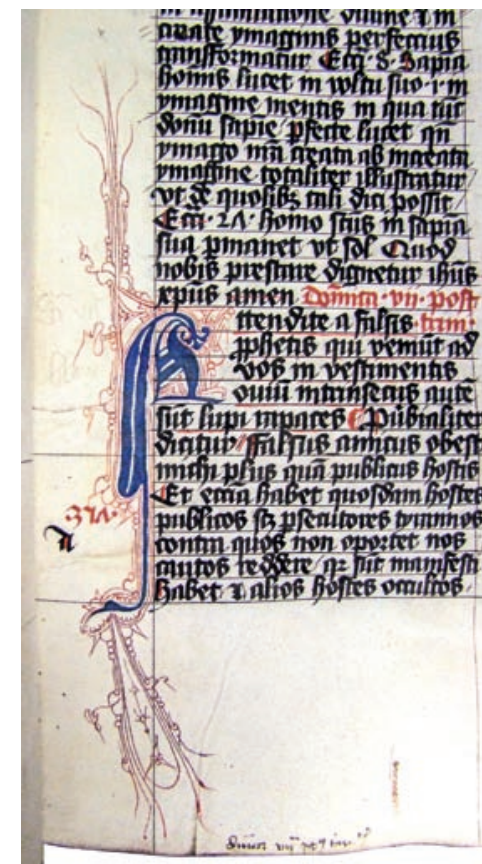 in assimilatione diuine ⁊ in
create ymaginis perfectius
transformatur Ecci · 8 · Sapia
homis lucet in voltu suo · i · in
ymagine mentis in qua tūc
donū sapie pfecte lucet qn̄
ymago nrā creata ab increata
ymagine totaliter illustratur
vt de quolibꝫ tali dici possit
Ecci · 27 · homo scūs in sapia
sua pmanet vt sol Quod
nobis prestare dignetur ihūs
xpūs amen Domica · vii · post
ttendite a falsis · trini ·
pphetis qui veniūt ad
vos in vestimentis
ouiū intrinsecus autē
sūt lupi rapaces Puibialiter
dicitur Falsus amicus obest
michi plus quā publicus hostis
Et eccia habet quosdam hostes
publicos sꝫ psecutores tirannos
contra quos non oportet nos
cautos reddere qr sūt manifesti
habet ⁊ alios hostes occultos ·
A